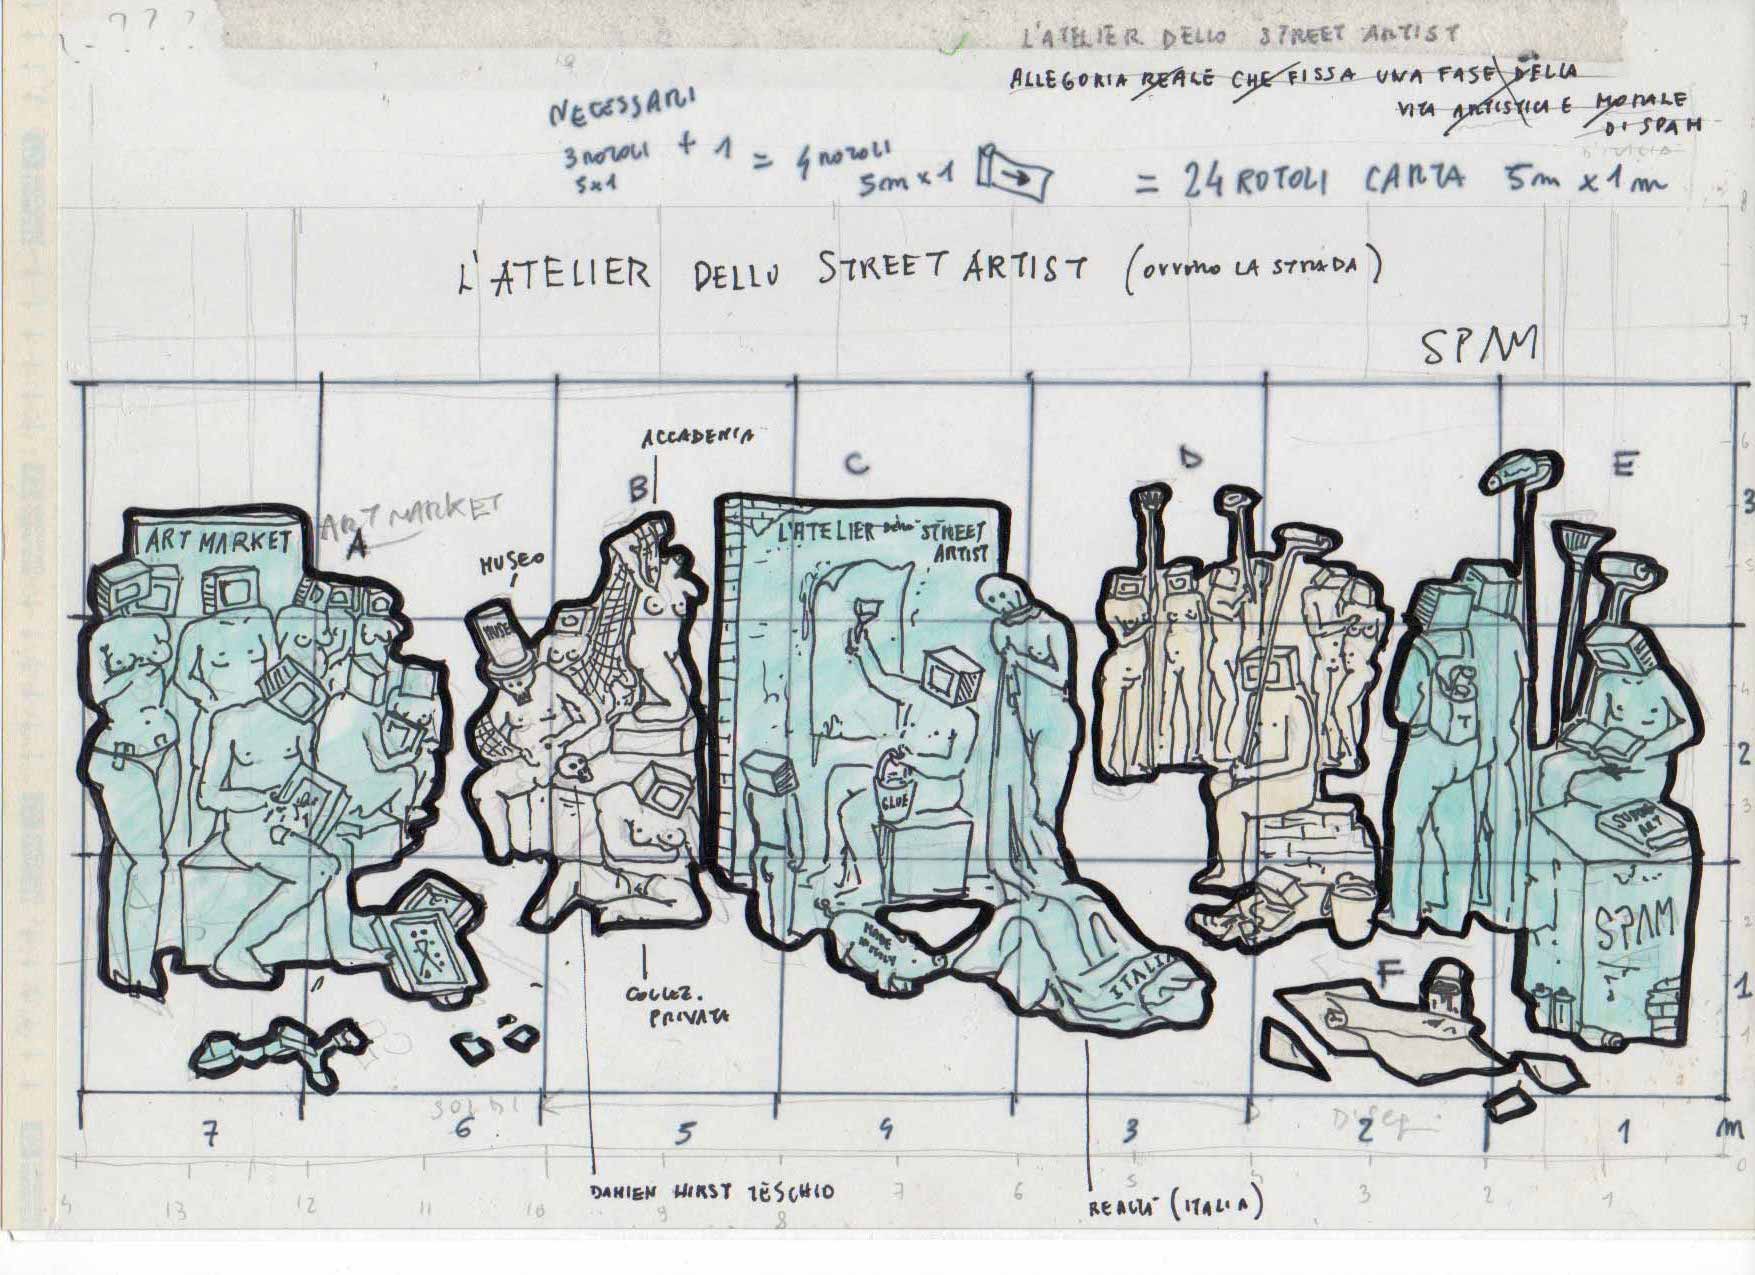 ???
L'ATELIER DELLO STREET ARTIST
ALLEGORIA REALE CHE FISSA UNA FASE DELLA
VITA ARTISTICA E MORALE
DI SPAM
NECESSARI
3 ROTOLI + 1 = 4 ROTOLI
5x1
5m x 1
= 24 ROTOLI CARTA 5m x 1m
L'ATELIER DELLO STREET ARTIST (OVVERO LA STRADA)
SPAM
ACCADEMIA
B
C
D
E
3
ART MARKET
A
ART MARKET
MUSEO
MUSEO
L'ATELIER DELLO STREET
ARTIST
GLUE
2
SPAM
MADE
IN ITALY
ITALIA
F
1
COLLEZ.
PRIVATA
SOLDI
7
6
5
4
3
2
1
m
DAMIEN HIRST TESCHIO
REALTÀ (ITALIA)
13
12
10
9
8
7
6
5
3
2
1
0